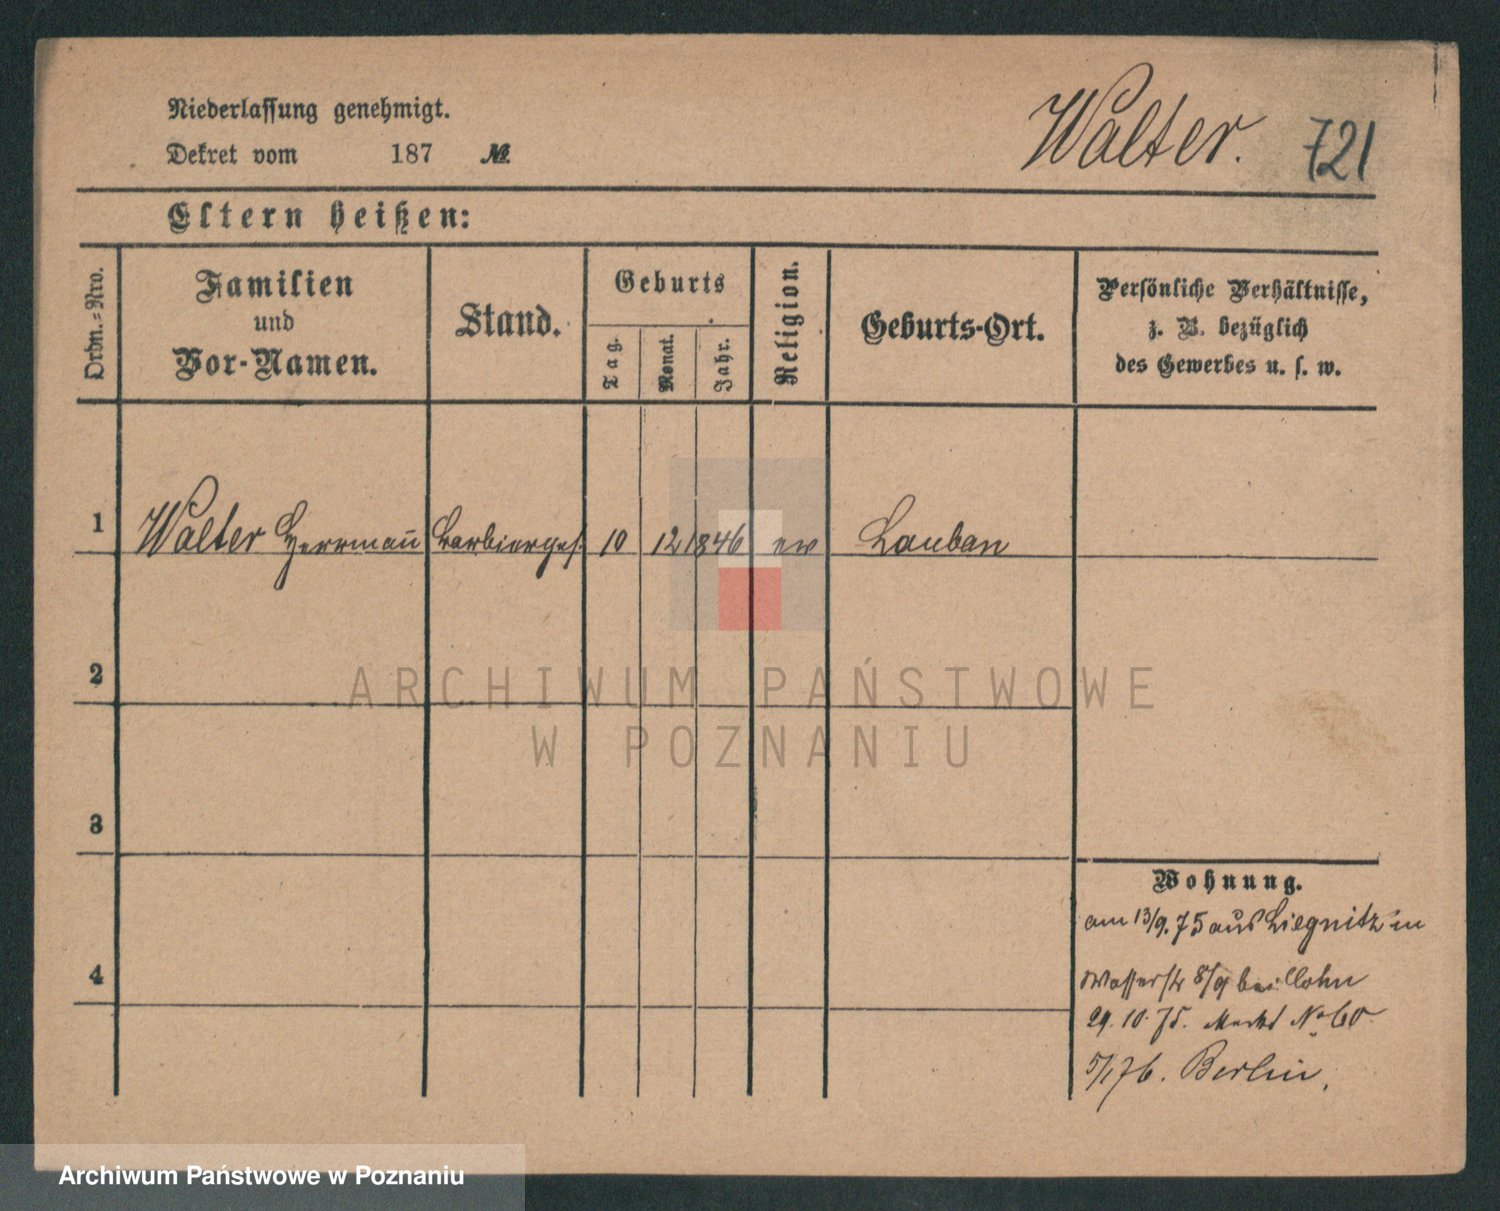 Niederlassung genehmigt.
Dekret vom 187 №
Walter. 721
Eltern heißen:
Ordn.-Nro.
Familien
und
Vor-Namen.
Stand.
Geburts
Tag.
Monat.
Jahr.
Religion.
Geburts-Ort.
Persönliche Verhältnisse,
z. B. bezüglich
des Gewerbes u. s. w.
1 Walter Herrmann Barbierges. 10 12 1846 ev Lauban
2
3
4
Wohnung.
am 13/9. 75 aus Liegnitz in
Wasserstr 8/9 bei Cohn
29. 10. 75. Markt No 60
5/1 76. Berlin.
ARCHIWUM PAŃSTWOWE
W POZNANIU
Archiwum Państwowe w Poznaniu